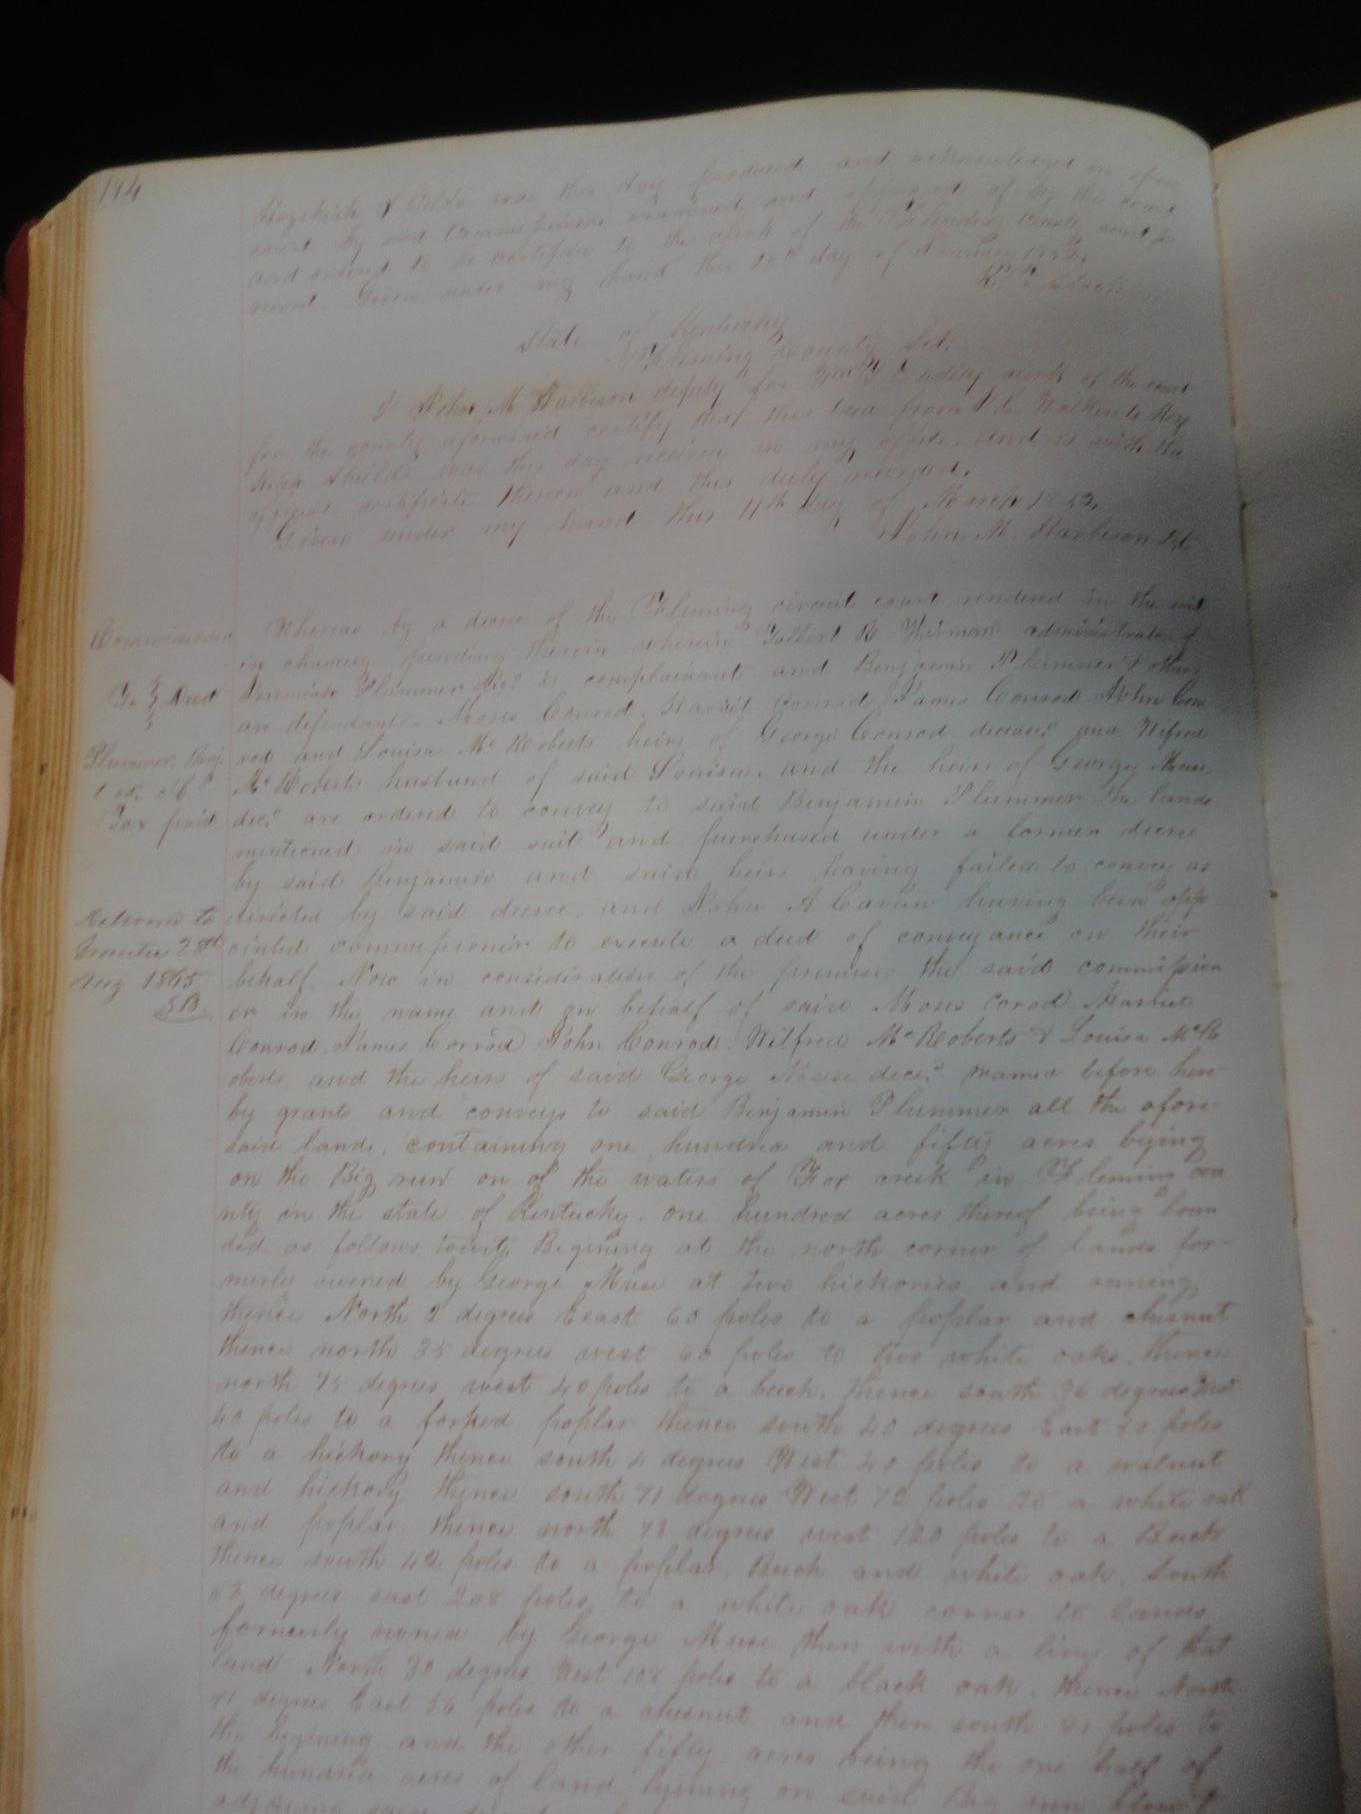 184
Shields was this day produced and acknowledged in open
court by said Commissioner examined and approved of by the court
and ordered to be certified to the clerk of the Fleming County court for
record. Given under my hand this day of
State of Kentucky
Fleming County Sct.
I John M Harbison deputy for clerk of the court
for the county aforesaid certify that this deed from
Shields was this day received in my office and is with the
certificate thereon and this duly recorded.
Given under my hand this 11th day of March
John M. Harbison
Commissioner
To } Deed
Plummer, Benj.
Tax paid
Returned to
Grantee 28th
Aug 1865
SB
Whereas by a decree of the Fleming circuit court rendered in the suit
in chancery pending therein wherein Talbert R administrator of
Jeremiah Plummer decd is complainant and Benjamin Plummer & others
are defendants Moses Conrod, Harriet Conrod James Conrod John Con
rod and Louisa McRoberts heirs of George Conrod deceasd and Wilfred
McRoberts husband of said Louisa, and the heirs of George Muse
decd are ordered to convey to said Benjamin Plummer the lands
mentioned in said suit and purchased under a former decree
by said Benjamin and said heirs having failed to convey as
directed by said decree, and John A Cavan having been app
ointed commissioner to execute a deed of conveyance on their
behalf. Now in consideration of the premises the said commission
er in the name and on behalf of said Moses Corod Harriet
Conrod, James Conrod John Conrod, Wilfred McRoberts & Louisa McR
oberts, and the heirs of said George Muse decd named before here
by grants and conveys to said Benjamin Plummer all the afore-
said land, containing one hundred and fifty acres lying
on the Big run on of the waters of Fox creek in Fleming cou
nty in the state of Kentucky, one hundred acres thereof being boun
ded as follows towit, Begining at the north corner of lands for-
merly owened by George Muse at two hickories and runing
thence North 2 degrees East 60 poles to a poplar and chesnut
thence north 35 degrees west 60 poles to two white oaks, thence
north 75 degrees west 40 poles to a beech, thence south 36 degrees West
40 poles to a forked poplar thence south 20 degrees East poles
to a hickory thence south 4 degrees West 40 poles to a walnut
and hickory thence south 71 degrees West 72 poles to a white oak
and poplar, thence north 73 degrees west 120 poles to a Beech
thence south 42 poles to a poplar, Beech and white oak, South
degrees east 208 poles to a white oak corner to lands
formerly owned by George Muse then with a line of that
land North 30 degrees West 108 poles to a black oak, thence North
71 degrees East 56 poles to a chesnut and then south poles to
the begining and the other fifty acres being the one half of
the hundred acres of land lying on said Big run